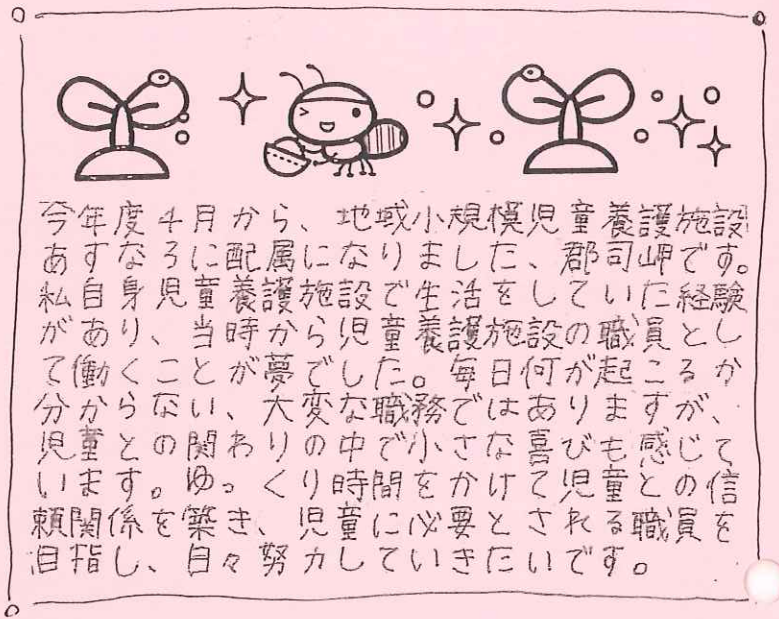 今年度4月から、地域小規模児童養護施設
あすなろに配属になりました、郡司岬です。
私自身児童養護施設で生活をしていた経験
があり、当時から児童養護施設の職員とし
て働くことが夢でした。毎日何が起こるか
分からない、大変な職務ではありますが、
児童との関わりの中で小さな喜びも感じて
います。ゆっくり時間をかけて児童との信
頼関係を築き、児童に必要とされる職員を
目指し、日々努力していきたいです。